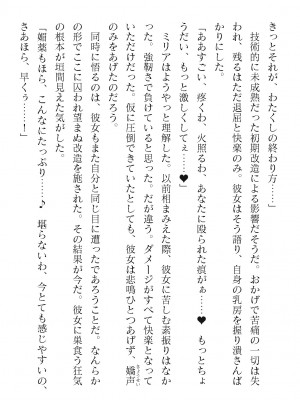 きっとそれが、わたくしの終わり方……」
　技術的に未成熟だった初期改造による影響だそうだ。おかげで苦痛の一切は失
われ、残るはただ退屈と快楽のみ。彼女はそう語り、自身の乳房を握り潰さんば
かりにした。
「ああすごい、疼くわ、火照るわ、あなたに殴られた痕がぁ……♥　もっとちょ
うだい、もっと激しくしてぇ……♥」
　ミリアはようやっと理解した。以前相まみえた際、彼女に苦しむ素振りはなか
った。強靭さで負けていると思った。だが違う。ダメージがすべて快楽となって
いただけだった。仮に圧倒できていたとしても、彼女は悲鳴ひとつあげず、嬌声
のみをあげたのだろう。
　同時に悟るのは、彼女もまた自分と同じ目に遭ったであろうことだ。なんらか
の形でここに囚われ望まぬ改造を施された。その結果が今だ。彼女に巣食う狂気
の根本が垣間見えた気がした。
「媚薬もほら、こんなにたっぷり……♪　堪らないわ、今とても感じやすいの、
さあほら、早くぅ……！」